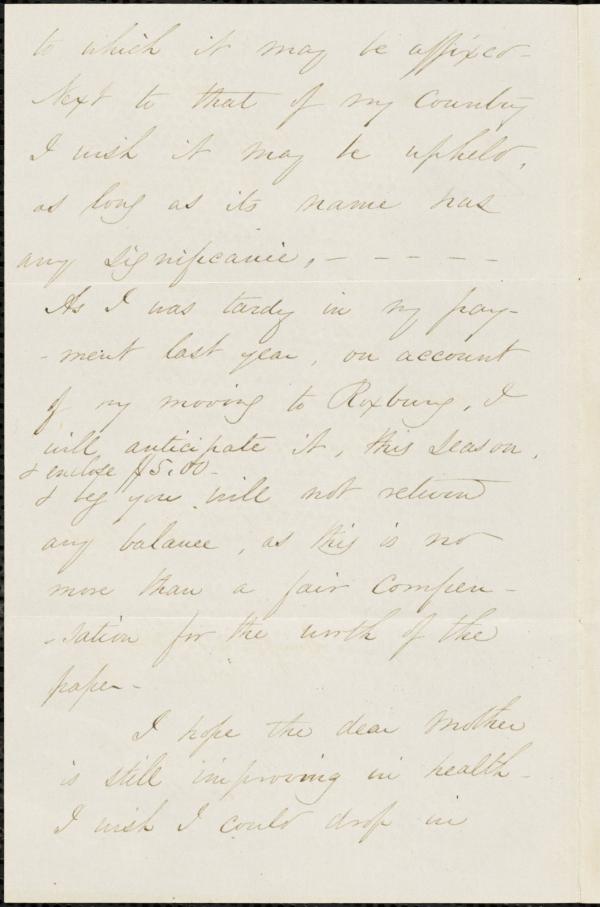 to which it may be affixed -
Next to that of my Country
I wish it may be upheld,
as long as its name has
any significance, - - - - -
As I was tardy in my pay-
-ment last year, on account
of my moving to Roxbury, I
will anticipate it, this season,
& enclose $5.00 -
& beg you will not return
any balance, as this is no
more than a fair compen-
-sation for the worth of the
paper -
I hope the dear Mother
is still improving in health -
I wish I could drop in